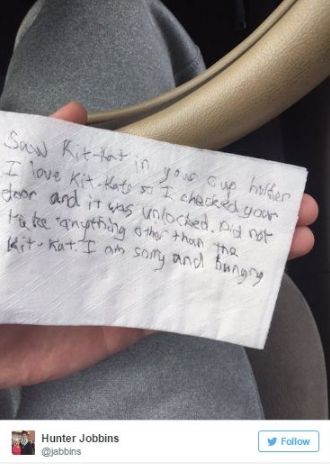 Saw Kit-Kat in your cup holder
I love Kit-Kats so I checked your
door and it was unlocked. Did not
take anything other than the
Kit-Kat. I am sorry and hungry
Hunter Jobbins
@jabbins
Follow